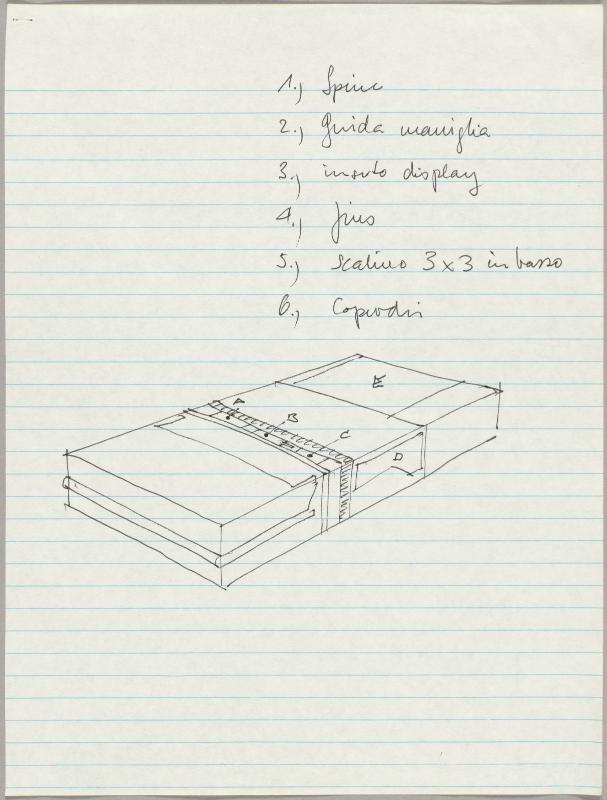 1.) Spine
2.) Guida maniglia
3.) inserto display
4.)
5.) scalino 3x3 in basso
6.)
A
B
C
D
E